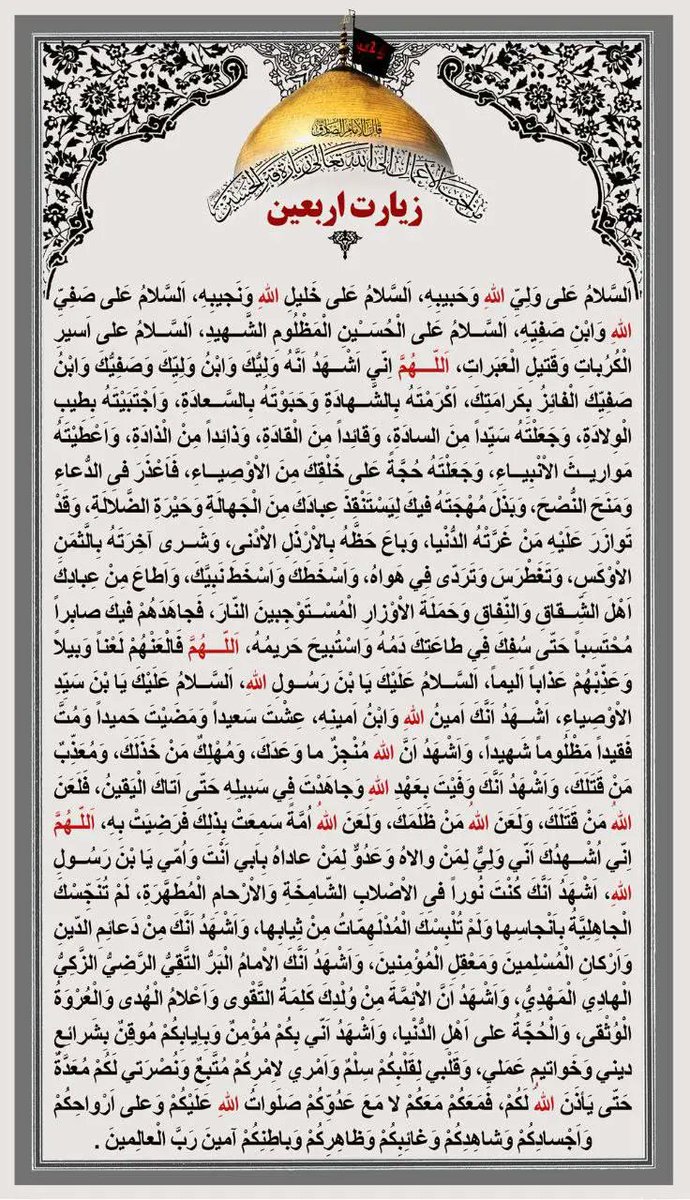 قال الإمام الصادق
من احب الاعمال الى الله تعالى زيارة قبر الحسين
زیارت اربعین
اَلسَّلامُ عَلى وَلِيِّ اللهِ وَحَبيبِهِ، اَلسَّلامُ عَلى خَليلِ اللهِ وَنَجيبِهِ، اَلسَّلامُ عَلى صَفِيِّ
اللهِ وَابْنِ صَفِيِّهِ، اَلسَّلامُ عَلى الْحُسَيْنِ الْمَظْلُومِ الشَّهيدِ، اَلسَّلامُ على اَسيرِ
الْكُرُباتِ وَقَتيلِ الْعَبَراتِ، اَللّهُمَّ اِنّي اَشْهَدُ اَنَّهُ وَلِيُّكَ وَابْنُ وَلِيِّكَ وَصَفِيُّكَ وَابْنُ
صَفِيِّكَ الْفائِزُ بِكَرامَتِكَ، اَكْرَمْتَهُ بِالشَّهادَةِ وَحَبَوْتَهُ بِالسَّعادَةِ، وَاَجْتَبَيْتَهُ بِطيبِ
الْوِلادَةِ، وَجَعَلْتَهُ سَيِّداً مِنَ السادَةِ، وَقائِداً مِنَ الْقادَةِ، وَذائِداً مِنْ الْذادَةِ، وَاَعْطَيْتَهُ
مَواريثَ الاَْنْبِياءِ، وَجَعَلْتَهُ حُجَّةً عَلى خَلْقِكَ مِنَ الاَْوْصِياءِ، فَاَعْذَرَ فىِ الدُّعاءِ
وَمَنَحَ النُّصْحَ، وَبَذَلَ مُهْجَتَهُ فيكَ لِيَسْتَنْقِذَ عِبادَكَ مِنَ الْجَهالَةِ وَحَيْرَةِ الضَّلالَةِ، وَقَدْ
تَوازَرَ عَلَيْهِ مَنْ غَرَّتْهُ الدُّنْيا، وَباعَ حَظَّهُ بِالاَْرْذَلِ الاَْدْنى، وَشَرى آخِرَتَهُ بِالَّثمَنِ
الاَْوْكَسِ، وَتَغَطْرَسَ وَتَرَدّى فِي هَواهُ، وَاَسْخَطَكَ وَاَسْخَطَ نَبِيَّكَ، وَاَطاعَ مِنْ عِبادِكَ
اَهْلَ الشِّقاقِ وَالنِّفاقِ وَحَمَلَةَ الاَْوْزارِ الْمُسْتَوْجِبينَ النّارَ، فَجاهَدَهُمْ فيكَ صابِراً
مُحْتَسِباً حَتّى سُفِكَ فِي طاعَتِكَ دَمُهُ وَاسْتُبيحَ حَريمُهُ، اَللّهُمَّ فَالْعَنْهُمْ لَعْناً وَبيلاً
وَعَذِّبْهُمْ عَذاباً اَليماً، اَلسَّلامُ عَلَيْكَ يَا بْنَ رَسُولِ اللهِ، اَلسَّلامُ عَلَيْكَ يَا بْنَ سَيِّدِ
الاَْوْصِياءِ، اَشْهَدُ اَنَّكَ اَمينُ اللهِ وَابْنُ اَمينِهِ، عِشْتَ سَعيداً وَمَضَيْتَ حَميداً وَمُتَّ
فَقيداً مَظْلُوماً شَهيداً، وَاَشْهَدُ اَنَّ اللهَ مُنْجِزٌ ما وَعَدَكَ، وَمُهْلِكٌ مَنْ خَذَلَكَ، وَمُعَذِّبٌ
مَنْ قَتَلَكَ، وَاَشْهَدُ اَنَّكَ وَفَيْتَ بِعَهْدِ اللهِ وَجاهَدْتَ فِي سَبيلِهِ حَتّى اَتاكَ الْيَقينُ، فَلَعَنَ
اللهُ مَنْ قَتَلَكَ، وَلَعَنَ اللهُ مَنْ ظَلَمَكَ، وَلَعَنَ اللهُ اُمَّةً سَمِعَتْ بِذلِكَ فَرَضِيَتْ بِهِ، اَللّهُمَّ
اِنّي اُشْهِدُكَ اَنّي وَلِيٌّ لِمَنْ والاهُ وَعَدُوٌّ لِمَنْ عاداهُ بِاَبي اَنْتَ وَاُمّي يَا بْنَ رَسُولِ
اللهِ، اَشْهَدُ اَنَّكَ كُنْتَ نُوراً فىِ الاَْصْلابِ الشّامِخَةِ وَالاَْرْحامِ الْمُطَهَّرَةِ، لَمْ تُنَجِّسْكَ
الْجاهِلِيَّةُ بِاَنْجاسِها وَلَمْ تُلْبِسْكَ الْمُدْلَهِمّاتُ مِنْ ثِيابِها، وَاَشْهَدُ اَنَّكَ مِنْ دَعائِمِ الدّينِ
وَاَرْكانِ الْمُسْلِمينَ وَمَعْقِلِ الْمُؤْمِنينَ، وَاَشْهَدُ اَنَّكَ الاِْمامُ الْبَرُّ التَّقِيُّ الرَّضِيُّ الزَّكِيُّ
الْهادِي الْمَهْدِيُّ، وَاَشْهَدُ اَنَّ الاَْئِمَّةَ مِنْ وُلْدِكَ كَلِمَةُ التَّقْوى وَاَعْلامُ الْهُدى وَالْعُرْوَةُ
الْوُثْقى، وَالْحُجَّةُ على اَهْلِ الدُّنْيا، وَاَشْهَدُ اَنّي بِكُمْ مُؤْمِنٌ وَبِاِيابِكُمْ مُوقِنٌ بِشَرايِعِ
ديني وَخَواتيمِ عَمَلي، وَقَلْبي لِقَلْبِكُمْ سِلْمٌ وَاَمْري لاَِمْرِكُمْ مُتَّبِعٌ وَنُصْرَتي لَكُمْ مُعَدَّةٌ
حَتّى يَأذَنَ اللهُ لَكُمْ، فَمَعَكُمْ مَعَكُمْ لا مَعَ عَدُوِّكُمْ صَلَواتُ اللهِ عَلَيْكُمْ وَعلى اَرْواحِكُمْ
وَاَجْسادِكُمْ وَشاهِدِكُمْ وَغائِبِكُمْ وَظاهِرِكُمْ وَباطِنِكُمْ آمينَ رَبَّ الْعالِمينَ .